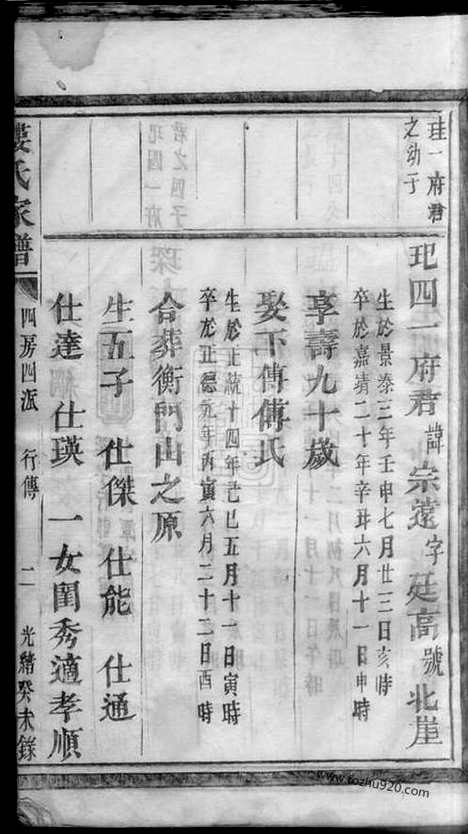 珪一府君
之幼子
玘四一府君諱宗遠字廷高號北崖
生於景泰三年壬申七月廿三日亥時
卒於嘉靖二十年辛丑六月十一日申時
享壽九十歲
娶下傅傅氏
生於正統十四年己巳五月十一日寅時
卒於正德元年丙寅六月二十二日酉時
合葬衡門山之原
生五子 仕傑 仕能 仕通
仕達 仕瑛 一女閨秀適孝順
婁氏家譜 四房四派 行傳 二 光緒癸未錄
www.tozhu920.com